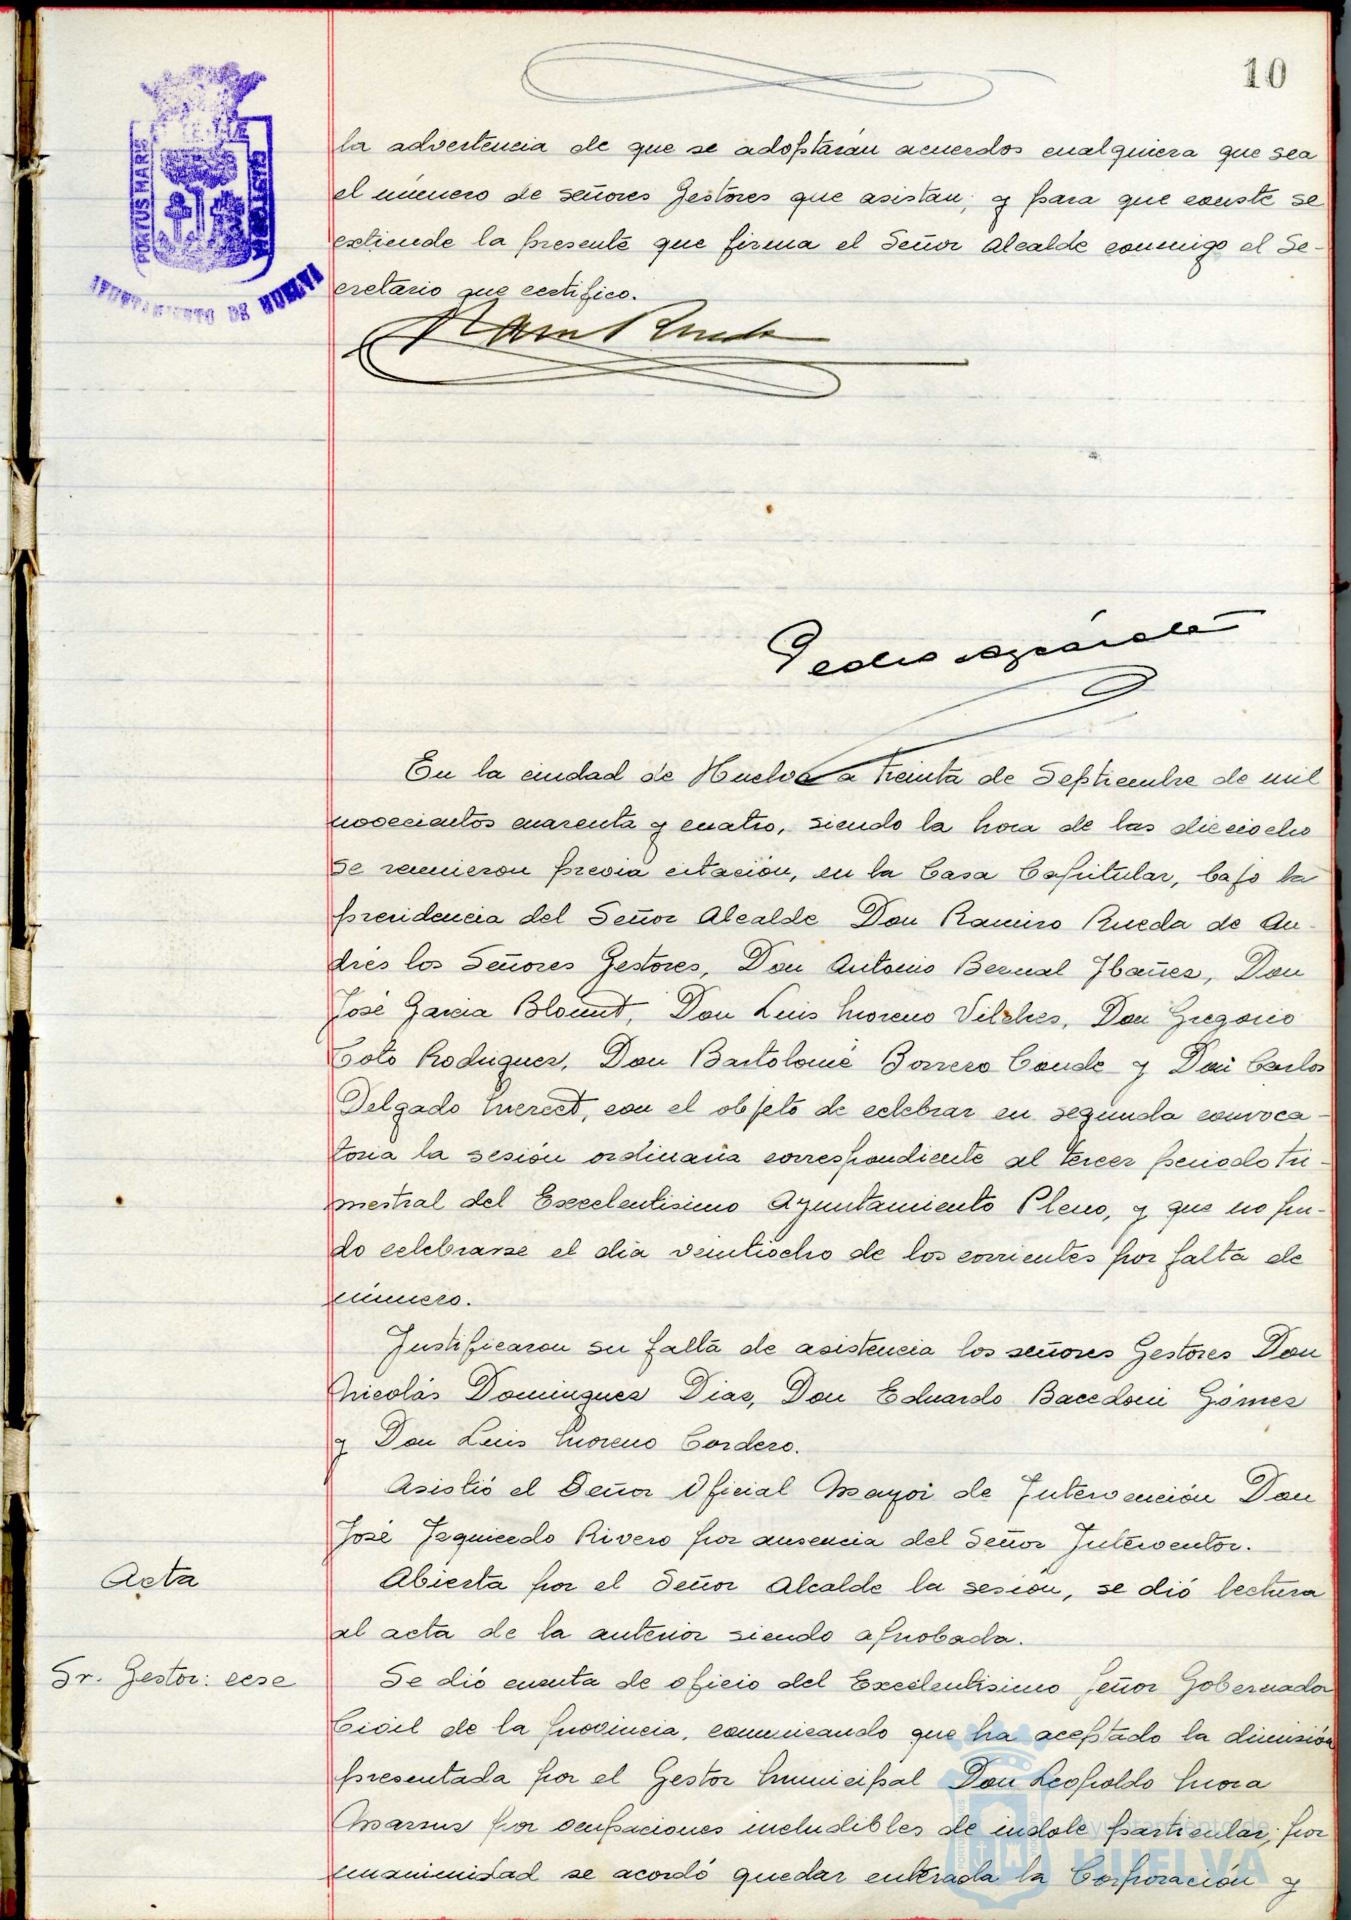 10
PORTUS MARIS
ET TERRAE
CUSTODIA
AYUNTAMIENTO DE HUELVA
la advertencia de que se adoptarán acuerdos cualquiera que sea
el número de señores Gestores que asistan; y para que conste se
extiende la presente que firma el Señor Alcalde conmigo el Se-
cretario que certifico.
Ram Rueda
Pedro Azcárate
En la ciudad de Huelva a treinta de Septiembre de mil
novecientos cuarenta y cuatro, siendo la hora de las dieciocho
se reunieron previa citación, en la Casa Capitular, bajo la
presidencia del Señor Alcalde Don Ramiro Rueda de An-
drés los Señores Gestores, Don Antonio Bernal Ibañez, Don
José Garcia Blount, Don Luis Moreno Vilches, Don Gregorio
Coto Rodriguez, Don Bartolomé Borrero Conde y Don Carlos
Delgado, con el objeto de celebrar en segunda convoca-
toria la sesión ordinaria correspondiente al tercer periodo tri-
mestral del Excelentisimo Ayuntamiento Pleno, y que no pu-
do celebrarse el día veintiocho de los corrientes por falta de
número.
Justificaron su falta de asistencia los señores Gestores Don
Nicolás Dominguez Diaz, Don Eduardo Bacedoni Gómez
y Don Luis Moreno Cordero.
Asistió el Señor Oficial Mayor de Intervención Don
José Izquierdo Rivero por ausencia del Señor Interventor.
Acta
Abierta por el Señor Alcalde la sesión, se dió lectura
al acta de la anterior siendo aprobada.
Sr. Gestor: cese
Se dió cuenta de oficio del Excelentisimo Señor Gobernador
Civil de la provincia, comunicando que ha aceptado la dimisión
presentada por el Gestor Municipal Don Leopoldo Mora
por ocupaciones includibles de indole particular; por
unanimidad se acordó quedar enterada la Corporación y
Ayuntamiento de
HUELVA